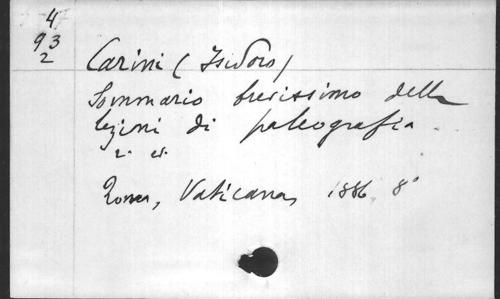 4
93
2
Carini (Isidoro)
Sommario brevissimo delle
lezioni di paleografia.
2. ed.
Roma, Vaticana, 1886 8°